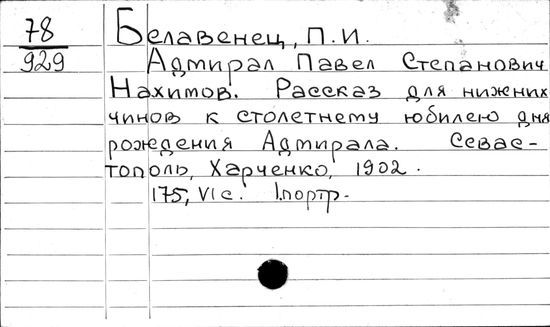 78
929
Белавенец, П.И.
Адмирал Павел Степанович
Нахимов. Рассказ для нижних
чинов к столетнему юбилею дня
рождения Адмирала. Севас-
тополь, Харченко, 1902.
175, VI с. 1 портр.